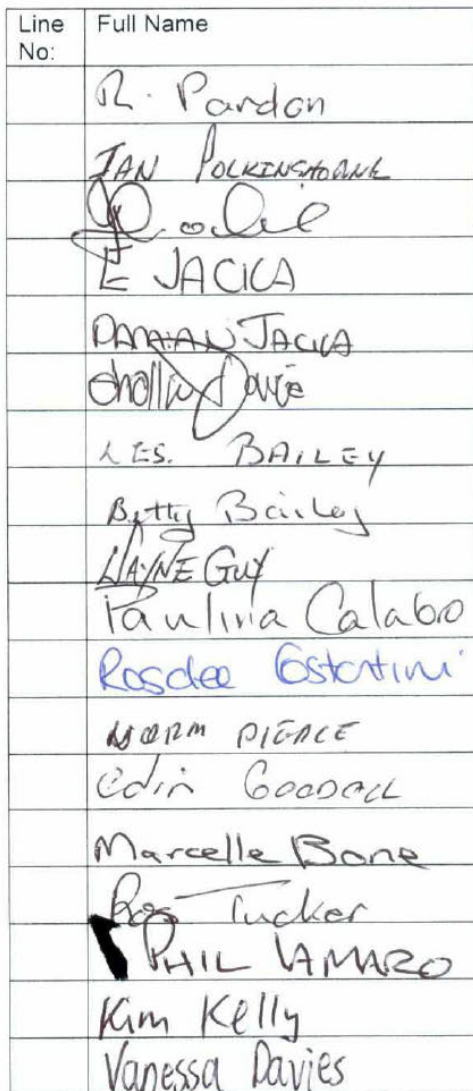 Line No: Full Name
R. Pardon
IAN POLKINGHORNE
E JACKA
DAMIAN JACKA
Davie
LES. BAILEY
Betty Bailey
WAYNE GUY
Paulina Calabro
NORM PIERCE
Colin GOODALL
Marcelle Bone
Tucker
PHIL
Kim Kelly
Vanessa Davies